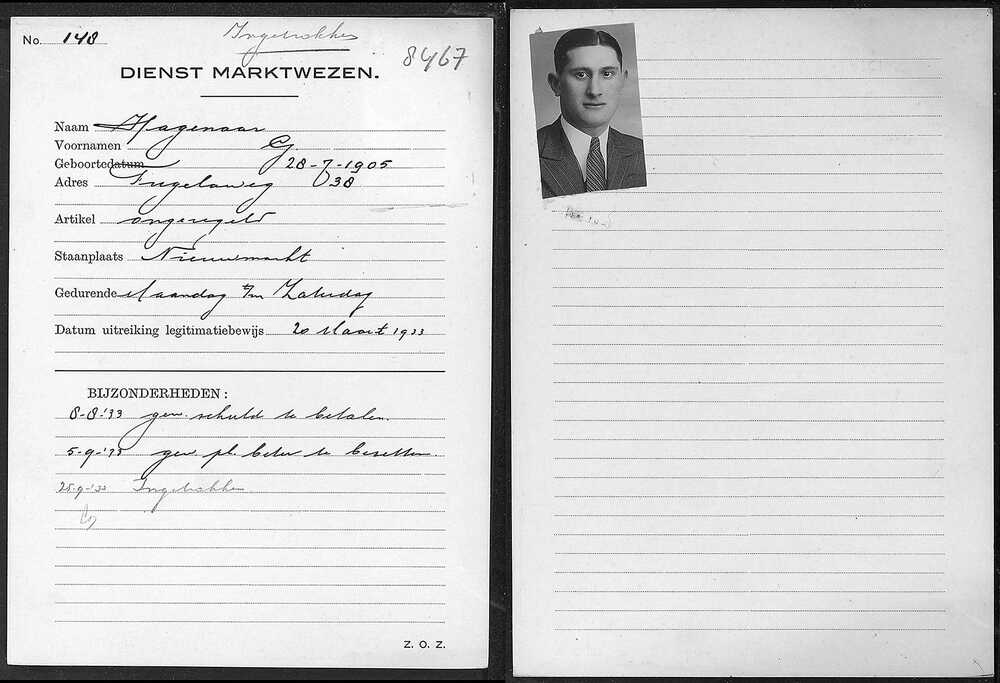 No. 148
Ingetrokken
8467
DIENST MARKTWEZEN.
Naam Hagenaar
Voornamen G.
Geboortedatum 28-7-1905
Adres 38
Artikel ongeregeld
Staanplaats Nieuwmarkt
Gedurende Maandag t/m Zaterdag
Datum uitreiking legitimatiebewijs 20 Maart 1933
BIJZONDERHEDEN:
8-8-'33 gew. schuld te betalen.
5-9-'33 gew. pl. beter te bezetten.
25-9-'33 Ingetrokken
Z. O. Z.